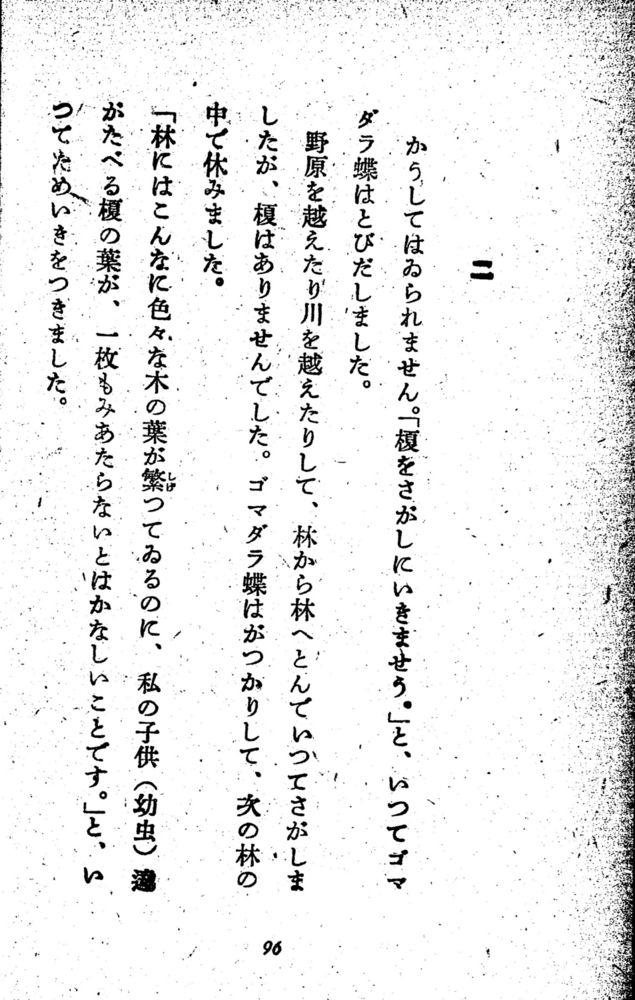 二
かうしてはゐられません。「榎をさがしにいきませう。」と、いつてゴマ
ダラ蝶はとびだしました。
野原を越えたり川を越えたりして、林から林へとんでいつてさがしま
したが、榎はありませんでした。ゴマダラ蝶はがつかりして、次の林の
中で休みました。
「林にはこんなに色々な木の葉が繁つてゐるのに、私の子供(幼虫)達
しげ
がたべる榎の葉が、一枚もみあたらないとはかなしいことです。」と、い
つてためいきをつきました。
96